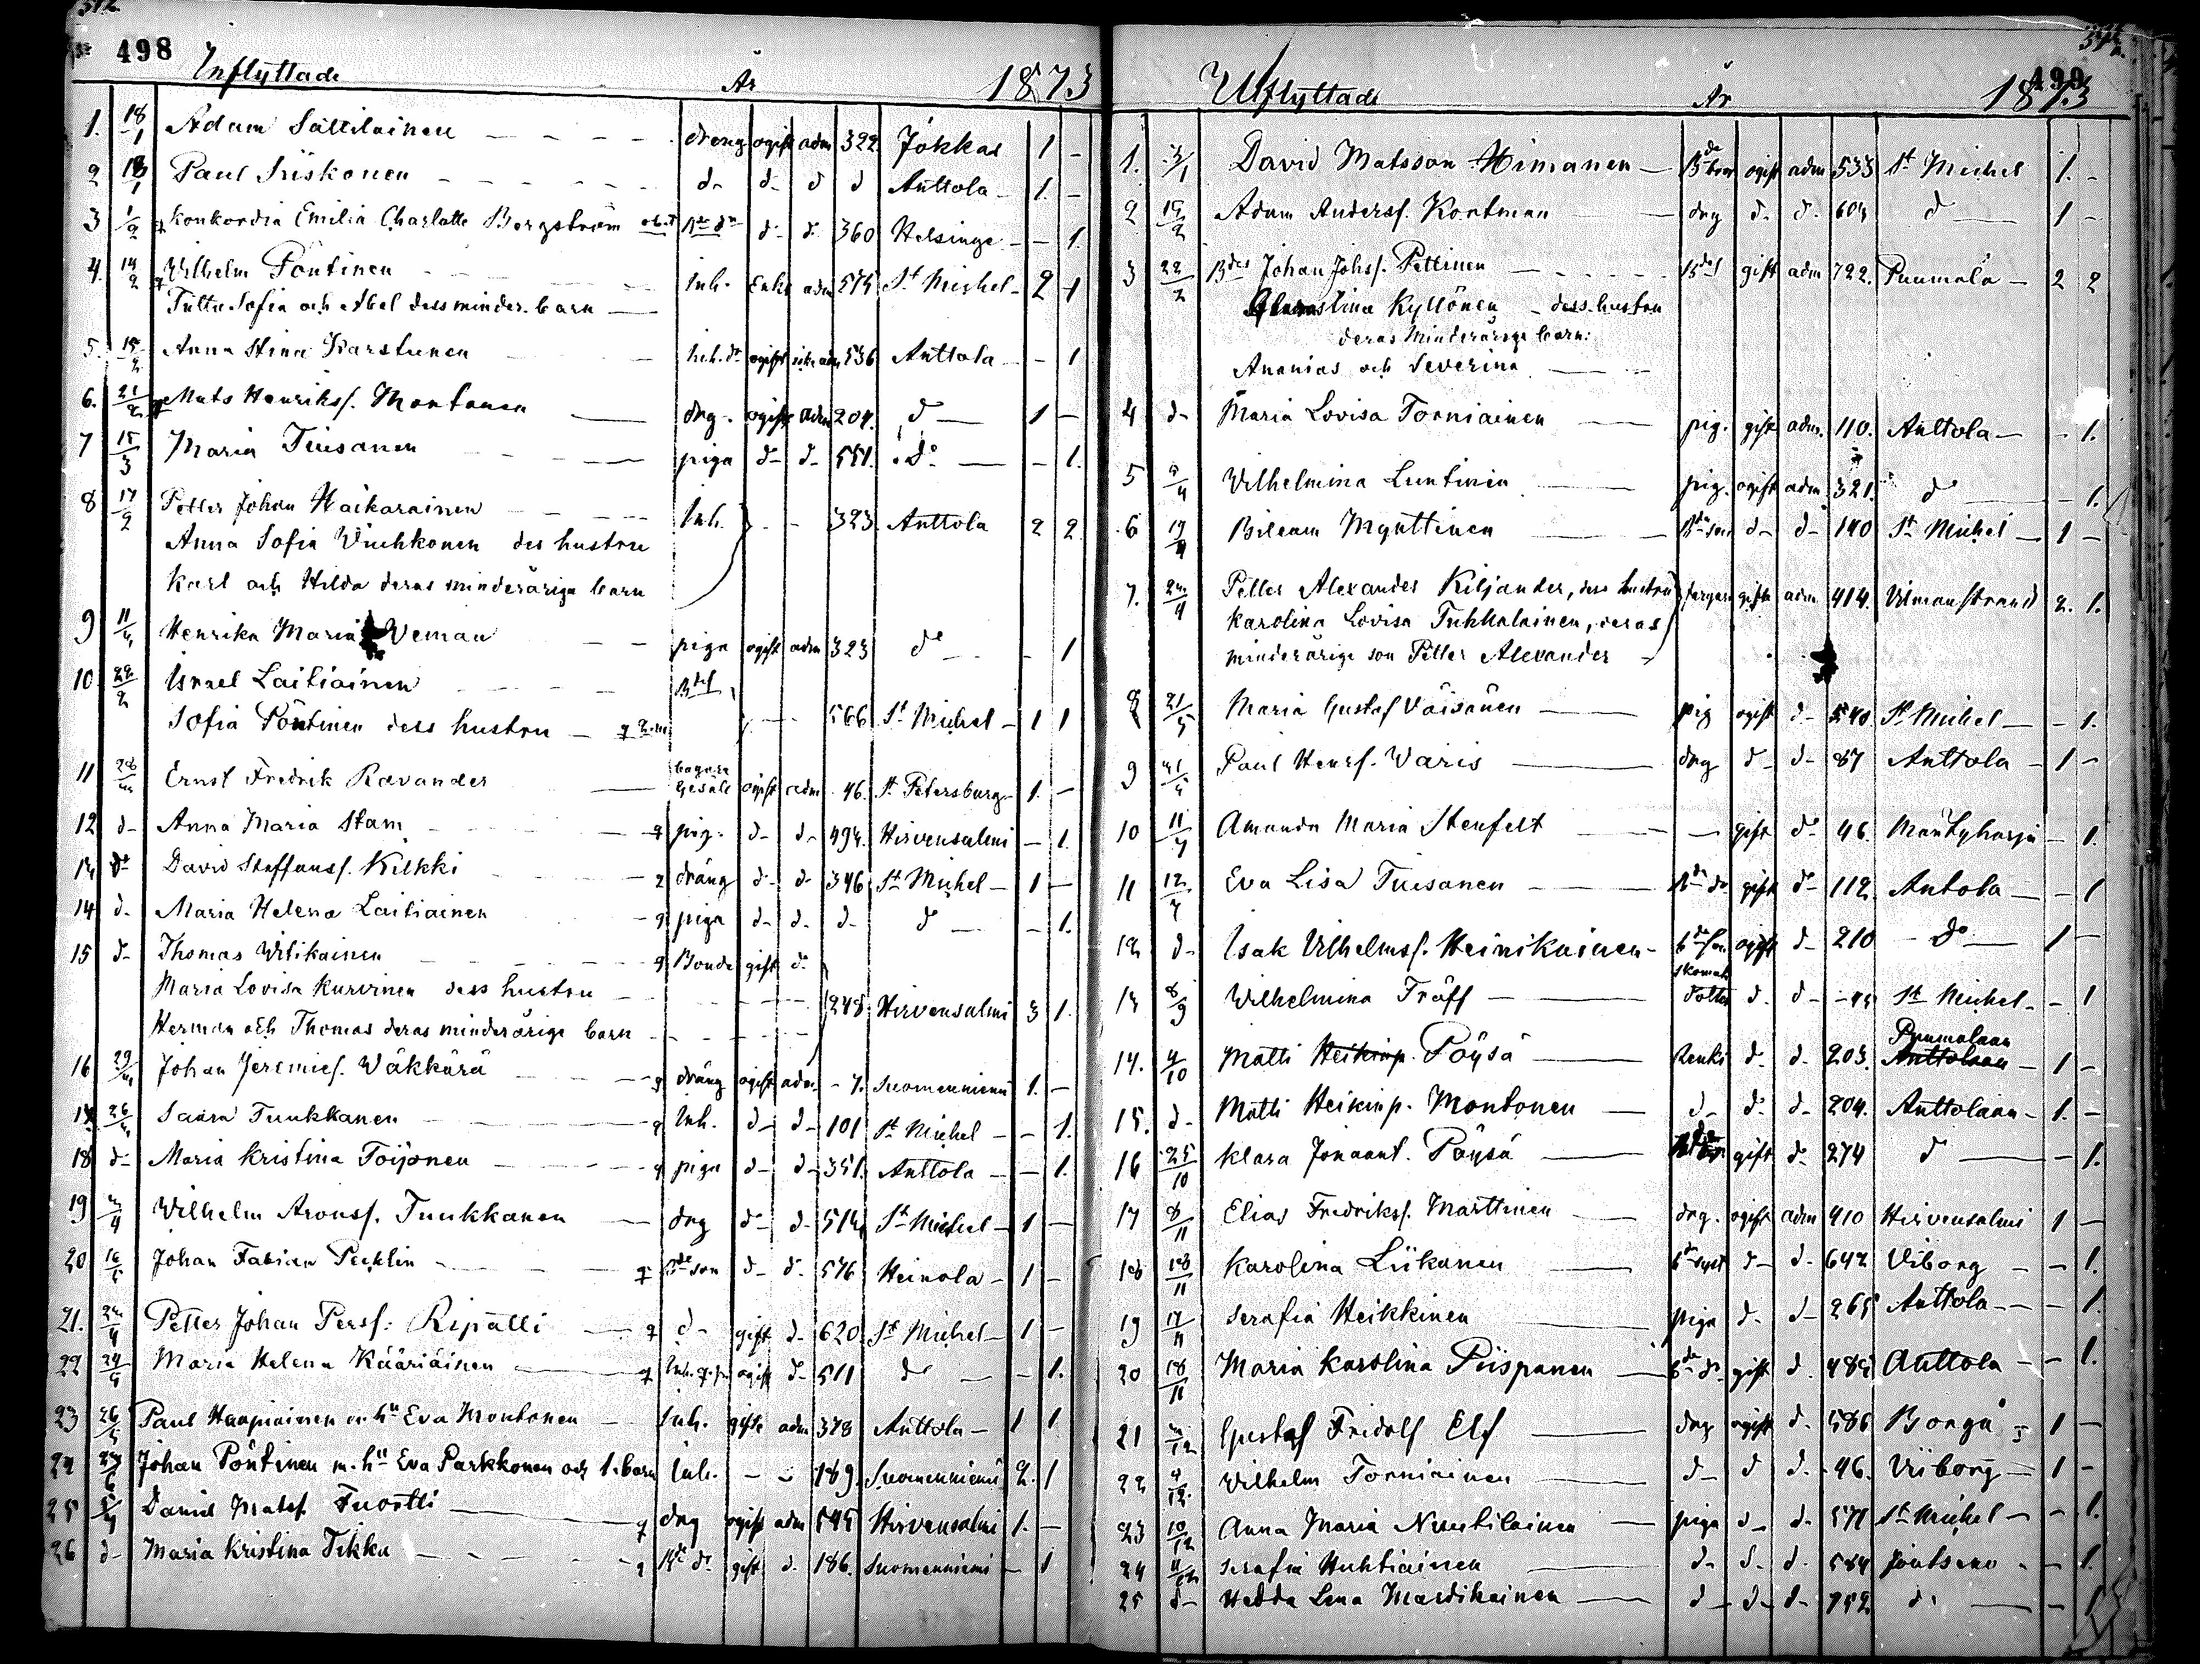 498
Inflyttade År 1873
1. 18/1 Adam Sättiläinen dreng ogift adm 322. Jokkas 1 -
2 18/1 Paul Iiskonen d- d- d d Anttola 1. -
3 1/2 Konkordia Emilia Charlotte Bergström d- d- 360 Helsinge - 1.
4. 14/2 Wilhelm Pöntinen Inh. Enkl adm 574 St Michel 2 1
Tiltu Sofia och Abel dess minder. barn
5. 15/2 Anna Stina Karstunen Inh. dr ogift 536 Anttola - 1
6. 21/2 Mats Henrikss. Montonen drg. ogift adm 204. d 1 -
7 15/3 Maria Tiusanen piga d- d- 551. do - 1.
8 17/2 Petter Johan Haikarainen Inh. - - 323. Anttola 2 2
Anna Sofia Wiehkonen des hustru
Karl och Hilda deras minderåriga barn
9 11/4 Henrika Maria Weman piga ogift adm 323 do - 1
10 22/2 Israel Laitiainen
Sofia Pöntinen dess hustru 566 St Michel 1 1
11 28/4 Ernst Fredrik Ravander bagare Gesäll ogift adm 46. St Petersburg 1. -
12 d- Anna Maria Stam pig. d- d- 494. Hirvensalmi - 1.
13 do David Staffanss. Kilkki dräng d- d- 346 St Michel 1 -
14 d- Maria Helena Laitiainen piga d- d- d- d - 1.
15 d- Thomas Witikainen Bonde gift d-
Maria Lovisa Kurvinen dess hustru 248. Hirvensalmi 3 1.
Herman och Thomas deras minderårige barn
16 29/4 Johan Jeremies. Wäkkärä dräng ogift adm - 7. Suomenniemi 1. -
17 26/4 Saara Tuukkanen Inh. d- d- 101 St Michel - 1.
18 d- Maria Kristina Toijonen piga d- d- 351. Anttola - 1.
19 Wilhelm Aronss. Tuukkanen drg d- d- 514 St Michel 1 -
20 Johan Fabian Pecklin Bde son d- d- 576 Heinola 1 -
21. Petter Johan Perss: Ripatti d- gift d- 620. St Michel 1 -
22 Maria Helena Kääriäinen ogift d- 511 do - 1.
23 26/5 Paul Haapiainen m. hu Eva Montonen Inh. gifte adm 378 Anttola 1 1
24 Johan Pöntinen m. hu Eva Parkkonen och 1. barn Inh. - - 189. Suomenniemi 2. 1
25 Daniel Matss Tuortti drg ogift adm 545 Hirvensalmi 1. -
26 d- Maria Kristina Tikka Bde dr gift d. 186. Suomenniemi - 1
499
Utflyttade År 1873
1. 3/1 David Matsson Himanen ogift adm 533 St Michel 1. -
2 Adam Anderss. Kontman drg d- d- 604 d 1 -
3 22/2 Johan Johss. Pettinen gift adm 722. Puumala 2 2
Kyllönen dess hustru
deras Minderårige barn:
Ananias och Severina
4 d- Maria Lovisa Torniainen pig. gift adm. 110. Anttola - 1.
5 4/4 Wilhelmina Luntinen pig. ogift adm 321. d - 1.
6 Bileam Mynttinen Bde son d- d- 140 St Michel 1 -
7. Petter Alexander Kiljander, dess hustru gifte adm 414. Wilmanstrand 2. 1.
Karolina Lovisa Tuhkalainen, deras
minderårige son Petter Alexander
8 21/5 Maria Gustaf Väisänen pig ogift d- 540 St Michel - 1.
9 Paul Henrs. Waris drg d- d- 87 Anttola 1 -
10 11/7 Amanda Maria Stenfelt - gift d- 46. Mäntyharju - 1.
11 12/7 Eva Lisa Tiusanen Bde dr gift d- 112 Antola - 1
12 d- Isak Wilhelmss. Heinikainen Bde son ogift d- 210 do 1 -
13 8/9 Wilhelmina Träff Skomak dotter d. d- St Michel - 1
14. 4/10 Matti Heikinp. Pöysä Renki d. d. 203. Puumalaan Anttolaan 1 -
15. d- Matti Heikinp. Montonen d- d- d- 204. Anttolaan 1. -
16 25/10 Klara Jonaant. Pöysä gift d- 274 d - 1.
17 8/11 Elias Fredrikss. Marttinen drg. ogift adm 410 Hirvensalmi 1 -
18 18/11 Karolina Liikanen d- d- 642 Viborg - 1.
19 17/11 Serafia Heikkinen piga d- d- 265 Anttola - 1.
20 18/11 Maria Karolina Piispanen Bde dr gift d. 484 Anttola - 1.
21 Gustaf Fridolf Elf drg ogift d. 586 Borgå 1 -
22 4/12 Wilhelm Torniainen d- d d. 46. Wiborg 1 -
23 10/12 Anna Maria Nuutilainen piga d- d- 571 St Michel - 1.
24 11/12 Serafia Huhtiainen d- d- d- 584 Joutseno - 1.
25 d- Hedda Lena Mardikainen d- d- d- 752 d - 1